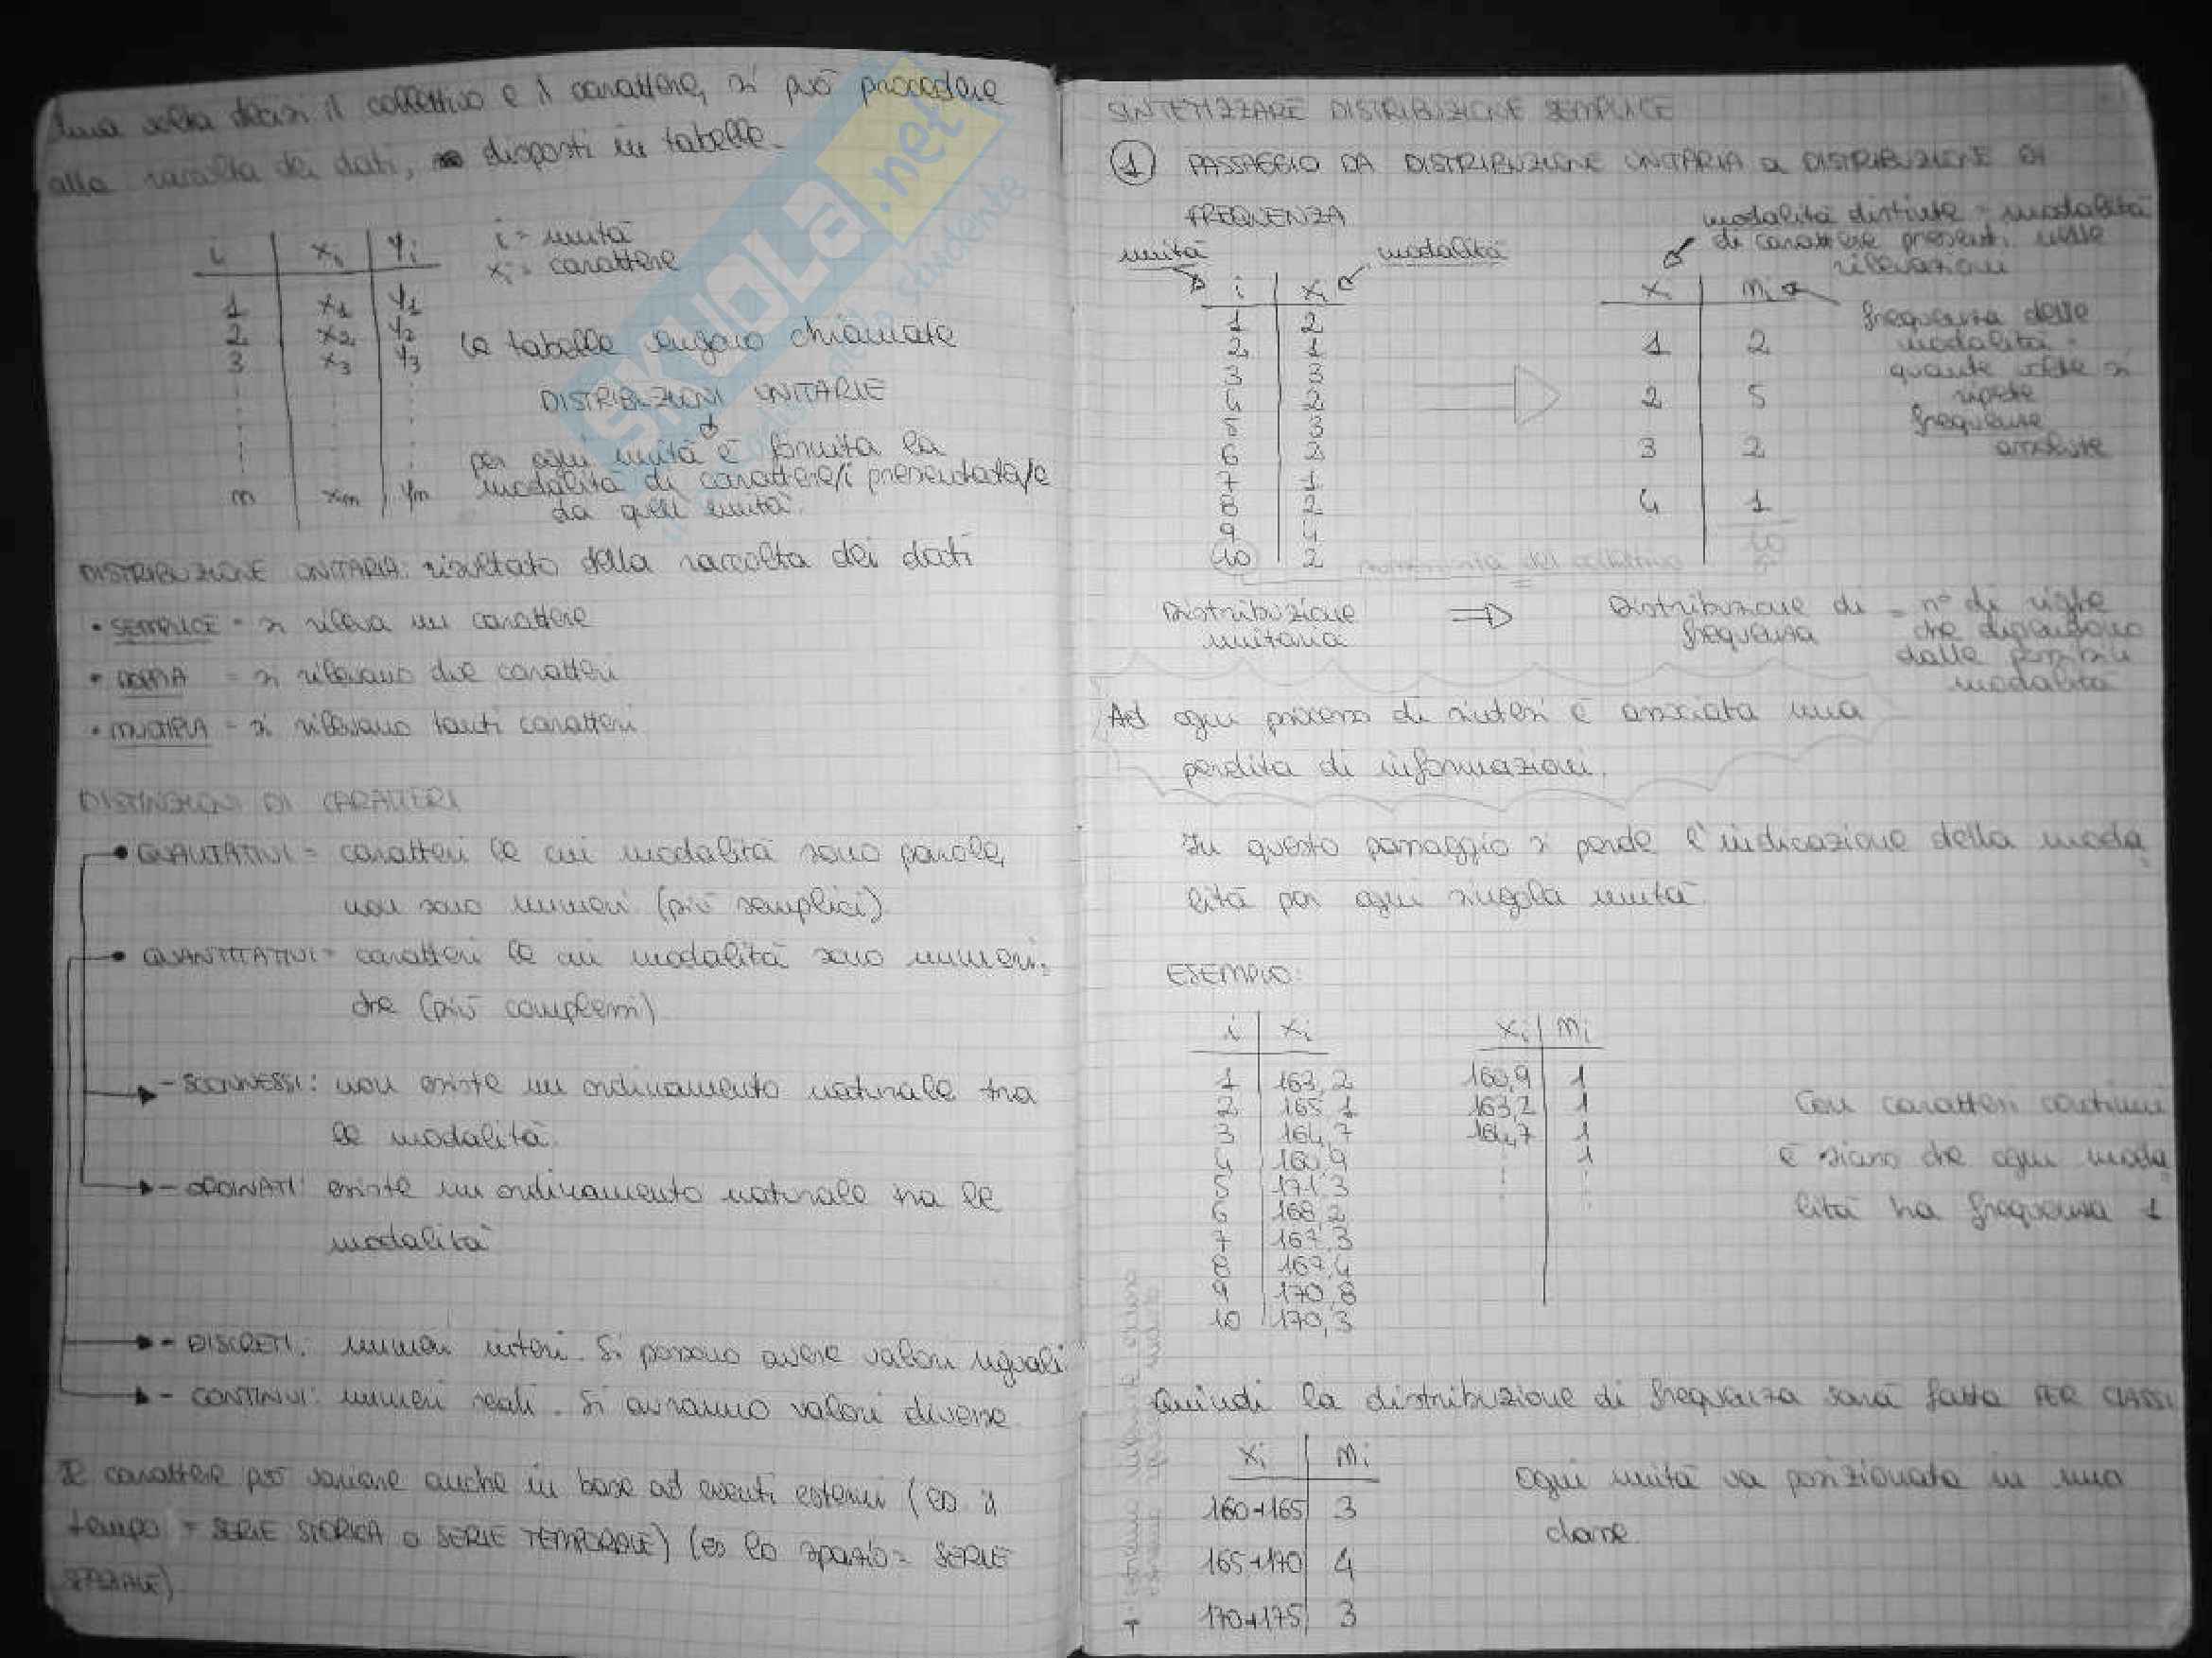 Una volta decisi il collettivo e il carattere, si può procedere
alla raccolta dei dati, disposti in tabelle.
i | xi | yi
i = unità
xi = carattere
1 | x1 | y1
2 | x2 | y2
3 | x3 | y3
le tabelle vengono chiamate
DISTRIBUZIONI UNITARIE
per ogni unità è fornita la
modalità di carattere/i presentata/e
da quell'unità.
n | xn | yn
DISTRIBUZIONE UNITARIA: risultato della raccolta dei dati
• SEMPLICE = si rileva un carattere
• DOPPIA = si rilevano due caratteri
• MULTIPLA = si rilevano tanti caratteri
DISTINZIONI DI CARATTERI
• QUALITATIVI = caratteri le cui modalità sono parole,
non sono numeri (più semplici)
• QUANTITATIVI = caratteri le cui modalità sono numeri-
che (più complessi)
- SCONNESSI: non esiste un ordinamento naturale tra
le modalità.
- ORDINATI: esiste un ordinamento naturale tra le
modalità
- DISCRETI: numeri interi. Si possono avere valori uguali
- CONTINUI: numeri reali. Si avranno valori diversi
Il carattere può variare anche in base ad eventi esterni (es il
tempo = SERIE STORICA o SERIE TEMPORALE) (es lo spazio = SERIE
SPAZIALE)
SINTETIZZARE DISTRIBUZIONE SEMPLICE
1 PASSAGGIO DA DISTRIBUZIONE UNITARIA a DISTRIBUZIONE DI
FREQUENZA
unità modalità
modalità distinte = modalità
di carattere presenti nelle
rilevazioni
i | xi
1 | 2
2 | 1
3 | 3
4 | 2
5 | 3
6 | 2
7 | 1
8 | 2
9 | 4
10 | 2
xi | ni
1 | 2
2 | 5
3 | 2
4 | 1
10
frequenza delle
modalità =
quante volte si
ripete
frequenze
assolute
numerosità del collettivo
Distribuzione
unitaria
⇒
Distribuzione di
frequenza
= n° di righe
che dipendono
dalle possibili
modalità
Ad ogni processo di sintesi è associata una
perdita di informazioni.
In questo passaggio si perde l'indicazione della moda
lità per ogni singola unità.
ESEMPIO:
i | xi
1 | 163,2
2 | 165,1
3 | 164,7
4 | 160,9
5 | 171,3
6 | 168,2
7 | 167,3
8 | 167,4
9 | 170,8
10 | 170,3
xi | ni
160,9 | 1
163,2 | 1
164,7 | 1
1
Con caratteri continui
è sicuro che ogni moda
lità ha frequenza 1
Quindi la distribuzione di frequenza sarà fatta PER CLASSI
xi | ni
160⊣165 | 3
165⊣170 | 4
170⊣175 | 3
Ogni unità va posizionata in una
classe.
SKUOLA.net
studente